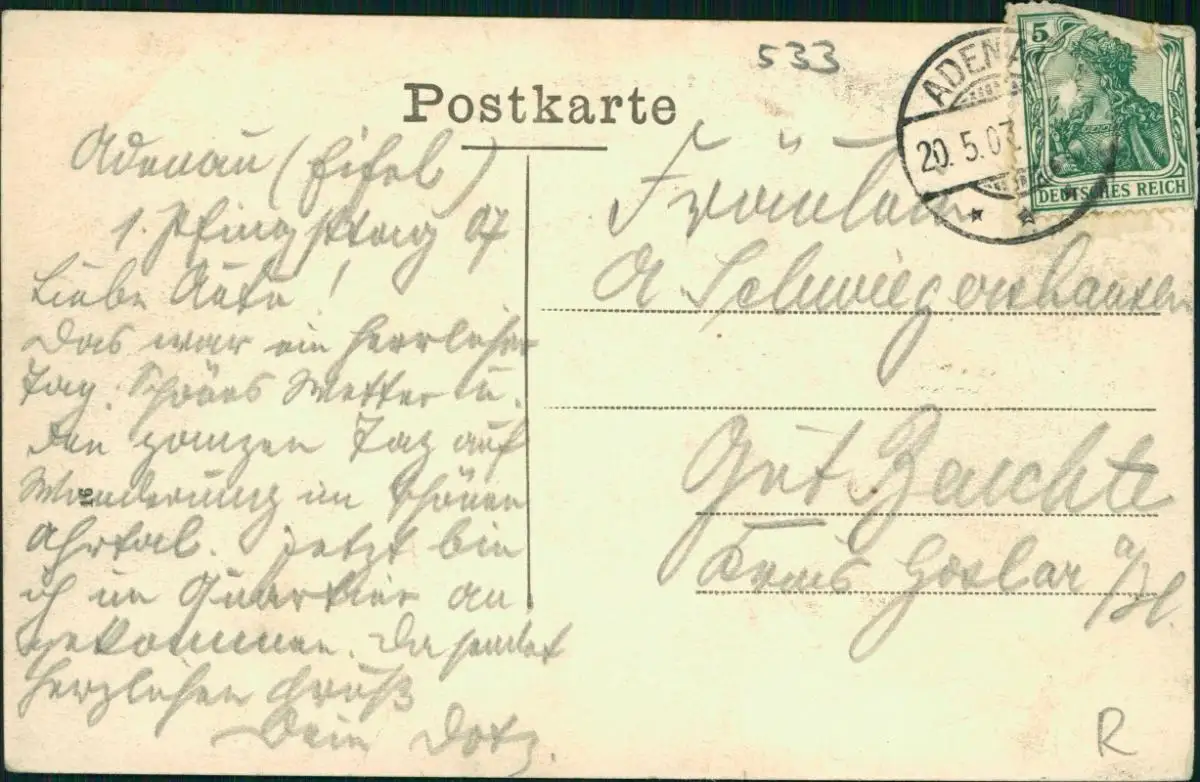 533
Postkarte
ADENAU
20.5.07
5
DEUTSCHES REICH
Adenau (Eifel)
1. Pfingsttag 07
Liebe
Das war ein herrlicher
Tag. Schönes Wetter u.
den ganzen Tag auf
Wanderung im schönen
Ahrtal. Jetzt bin
ich im Quartier an
gekommen. Da sendet
herzlichen Gruß
Dein
Fräulein
A Schwiegershausen
Gut
Kreis Goslar a/H.
16
R